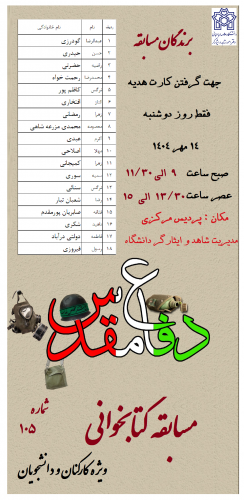 برندگان مسابقه
جهت گرفتن کارت هدیه
فقط روز دوشنبه
۱۴ مهر ۱۴۰۴
صبح ساعت ۹ الی ۱۱/۳۰
عصر ساعت ۱۳/۳۰ الی ۱۵
مکان : پردیس مرکزی
مدیریت شاهد و ایثارگر دانشگاه
ردیف نام نام خانوادگی
۱ عبدالرضا گودرزی
۲ حسن حیدری
۳ راضیه خضرنی
۴ محمدرضا رحمت خواه
۵ نرگس کاظم پور
۶ افتخاری
۷ زهرا رمضانی
۸ معصومه محمدی مزرعه شاهی
۹ اکرم عبدی
۱۰ مهلا اصلاحی
۱۱ زهرا کمیجانی
۱۲ سمیه سوری
۱۳ نرگس سنائی
۱۴ رضا شعبان تبار
۱۵ فتانه صابریان پورمقدم
۱۶ ناهید شکری
۱۷ فاطمه دولتی خرآباد
۱۸ رسول فیروزی
دفاع مقدس
مسابقه کتابخوانی
شماره
۱۰۵
ویژه کارکنان و دانشجویان